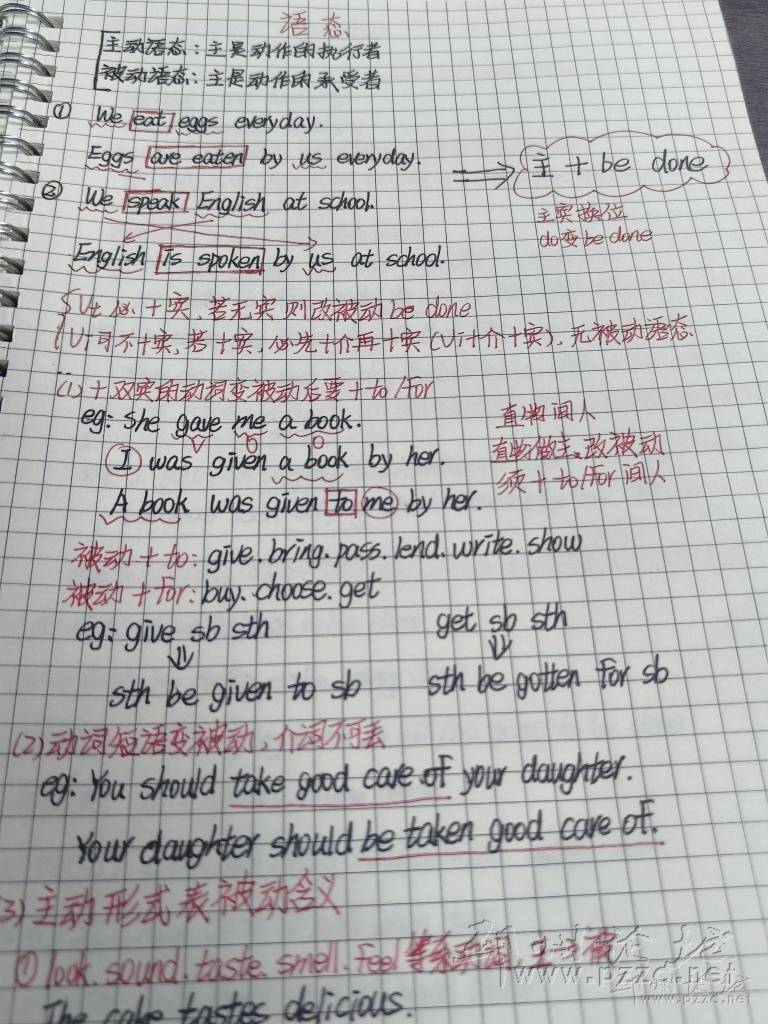 语态
主动语态：主是动作的执行者
被动语态：主是动作的承受者
① We eat eggs everyday.
Eggs are eaten by us everyday.
⇒ 主 + be done
② We speak English at school.
主宾换位
do变be done
English is spoken by us at school.
Vt 必 + 宾，若无宾则改被动 be done
Vi 可不+宾，若+宾，必先+介再+宾（Vi+介+宾），无被动语态.
(1) + 双宾的动词变被动后要 + to/for
eg: She gave me a book.
V O O
直物间人
I was given a book by her.
直物做主，改被动
A book was given to me by her.
须 + to/for 间人
被动 + to: give. bring. pass. lend. write. show
被动 + for: buy. choose. get
eg: give sb sth
get sb sth
sth be given to sb
sth be gotten for sb
(2) 动词短语变被动，介词不可丢
eg: You should take good care of your daughter.
Your daughter should be taken good care of.
3) 主动形式表被动含义
① look. sound. taste. smell. feel 等系
The cake tastes delicious.
www.pzzc.net
www.pzzc.net